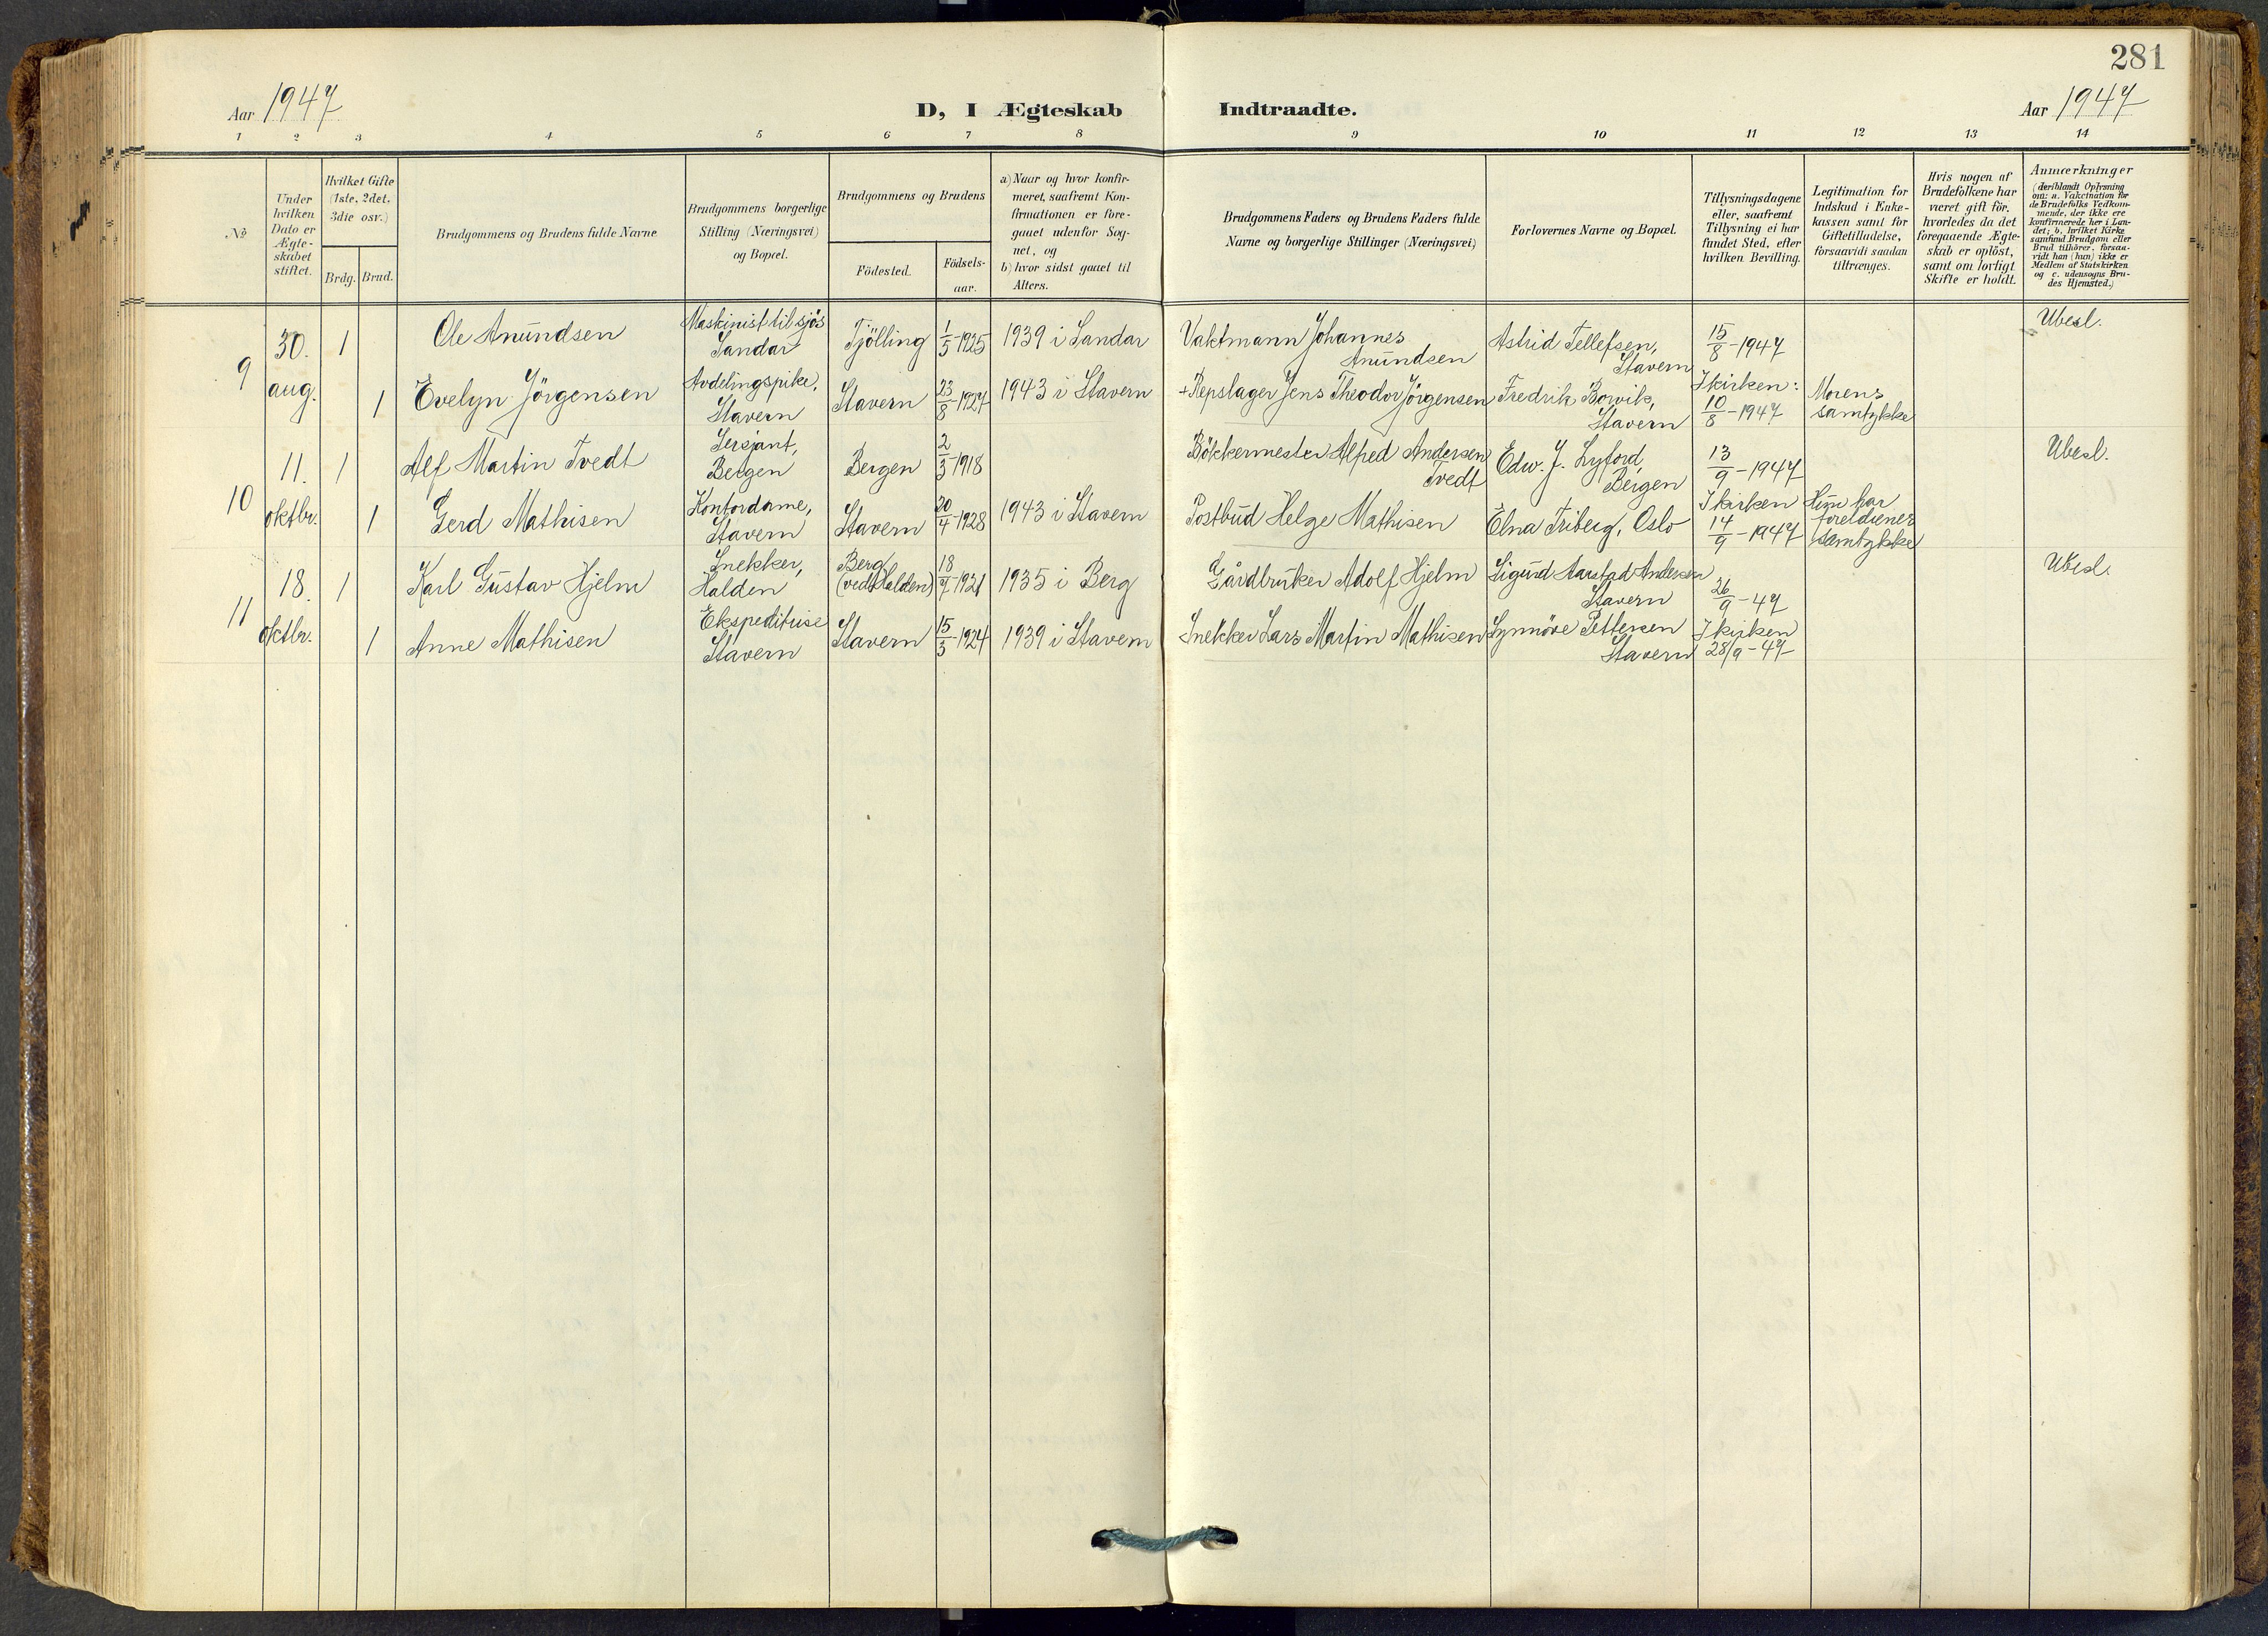 281
Aar 1947
D, I Ægteskab Indtraadte.
Aar 1947
1 2 3 4 5 6 7 8 9 10 11 12 13 14
No
Under
hvilken
Dato er
Ægte-
skabet
stiftet.
Hvilket Gifte
(1ste, 2det,
3die osv.)
Brdg. Brud.
Brudgommens og Brudens fulde Navne
Brudgommens borgerlige
Stilling (Næringsvei)
og Bopæl.
Brudgommens og Brudens
Födested.
Födsels-
aar.
a) Naar og hvor konfir-
meret, saafremt Kon-
firmationen er fore-
gaaet udenfor Sog-
net, og
b) hvor sidst gaaet til
Alters.
Brudgommens Faders og Brudens Faders fulde
Navne og borgerlige Stillinger (Næringsvei)
Forlovernes Navne og Bopæl.
Tillysningsdagene
eller, saafremt
Tillysning ei har
fundet Sted, efter
hvilken Bevilling.
Legitimation for
Indskud i Enke-
kassen samt for
Giftetilladelse,
forsaavidt saadan
tiltrænges.
Hvis nogen af
Brudefolkene har
været gift för,
hvorledes da det
foregaaende Ægte-
skab er oplöst,
samt om lovligt
Skifte er holdt.
Anmærkninger
(deriblandt Oplysning
om: a. Vakcination for
de Brudefolks Vedkom-
mende, der ikke ere
konfirmerede her i Lan-
det; b. hvilket Kirke
samfund Brudgom eller
Brud tilhörer, forsaa-
vidt han (hun) ikke er
Medlem af Statskirken
og c. udensogns Bru-
des Hjemsted.)
9
30.
aug.
1
Ole Anundsen
Maskinist til sjøs
Sandar
Tjölling
1/5-1925
1939 i Sandar
Vaktmann Johannes
Anundsen
Astrid Tellefsen,
Stavern
15/8-1947
Ubesl.
1
Evelyn Jörgensen
Avdelingspike,
Stavern
Stavern
23/8-1927
1943 i Stavern
+Repslager Jens Theodor Jörgensen
Fredrik Bowik,
Stavern
I kirken:
10/8-1947
Morens
samtykke
10
11.
oktbr.
1
Alf Martin Tvedt
Sersjant,
Bergen
Bergen
2/3-1918
Bökkermester Alfred Andersen
Tvedt
Edw. J. Lyford,
Bergen
13/9-1947
Ubesl.
1
Gerd Mathisen
Kontordame,
Stavern
Stavern
20/4-1928
1943 i Stavern
Postbud Helge Mathisen
Elna Friberg, Oslo
I kirken
14/9-1947
Hun har
foreldrenes
samtykke
11
18.
oktbr.
1
Karl Gustav Hjelm
Snekker,
Halden
Berg
(ved Halden)
18/7-1921
1935 i Berg
Gårdbruker Adolf Hjelm
Sigurd Aarstad Andersen
Stavern
26/9-47
Ubesl.
1
Anne Mathisen
Ekspeditrise
Stavern
Stavern
15/3-1924
1939 i Stavern
Snekker Lars Martin Mathisen
Synnöve Pettersen
Stavern
I kirken
28/9-47